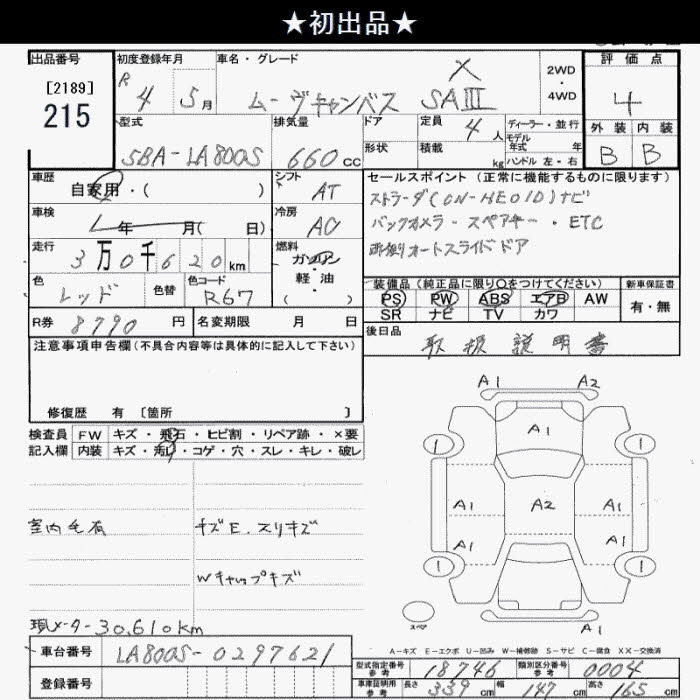 ★初出品★
出品番号 初度登録年月 車名・グレード 評価点
[2189] R 4 5月 ムーヴキャンバス X SAⅢ 2WD・4WD 4
215
型式 排気量 ドア 定員 4人 ディーラー・並行 外装 内装
5BA-LA800S 660cc 形状 積載 kg モデル年式 年 ハンドル 左・右 B B
車歴 シフト セールスポイント (正常に機能するものに限ります)
自家用・( ) AT ストラーダ(CN-HE01D)ナビ
車検 年 月( 日) 冷房 AC バックカメラ・スペアキー・ETC
走行 3万0千620km 燃料 ガソリン・軽油・( ) 両側オートスライドドア
色 レッド 色替 色コード R67 装備品(純正品に限り○をつけてください) 新車保証書
PS PW ABS エアB AW 有・無
SR ナビ TV カワ
R券 8790円 名変期限 月 日 後日品
取扱説明書
注意事項申告欄(不具合内容等は具体的に記入して下さい)
修復歴 有 [箇所 ]
検査員 FW キズ・飛石・ヒビ割・リペア跡・×要
記入欄 内装 キズ・汚れ・コゲ・穴・スレ・キレ・破レ
A1 A2
A1
1 1
A1 A2 A1
A1 A1
1 1
スペア A1
室内毛有 キズE.スリキズ
Wキャップキズ
現メーター30,610km
A-キズ E-エクボ U-凹み W-補修跡 S-サビ C-腐食 XX-交換済
車台番号 LA800S-0297621
登録番号
型式指定番号 参考 18746 類別区分番号 参考 0004
車庫証明用 参考 長さ 339cm 幅 147cm 高さ 165cm